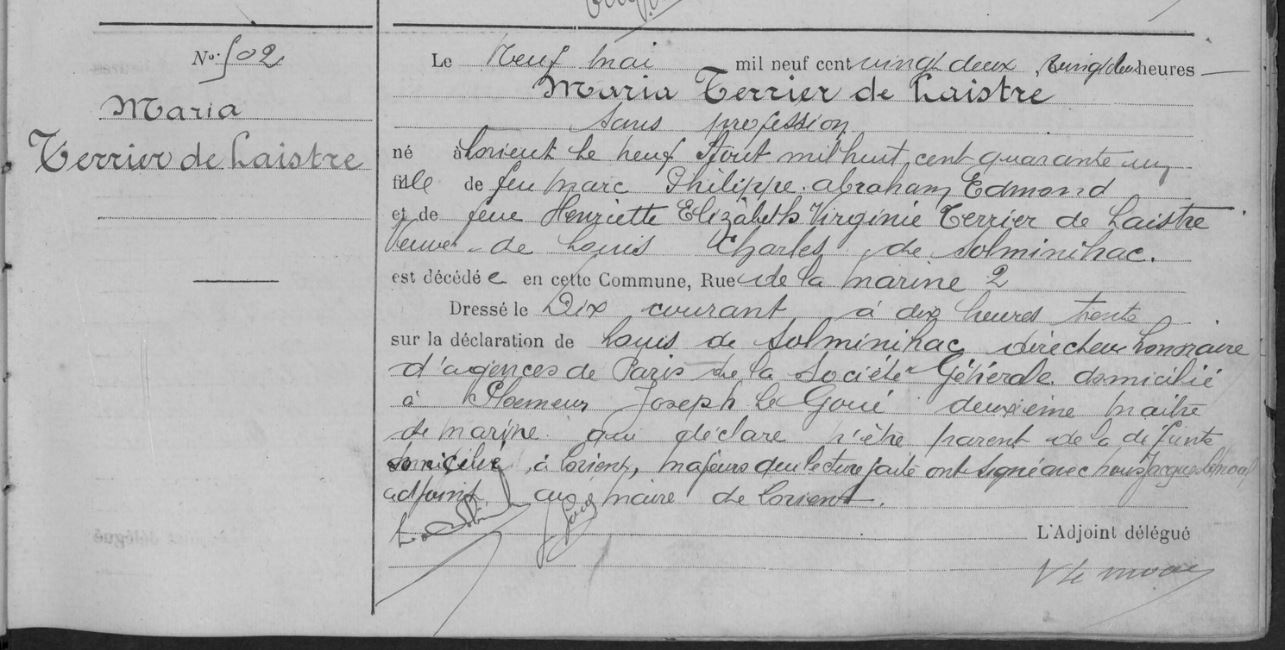 N° 502
Maria
Terrier de Laistre
Le Neuf mai mil neuf cent vingt deux, vingt deux heures
Maria Terrier de Laistre
sans profession
né à Lorient le neuf Août mil huit cent quarante un
fille de feu Marc Philippe Abraham Edmond
et de feue Henriette Elizabeth Virginie Terrier de Laistre
Veuve de Louis Charles de Solminihac.
est décédée en cette Commune, Rue de la marine 2
Dressé le Dix courant à dix heures trente
sur la déclaration de Louis de Solminihac, directeur honoraire
d'agences de Paris de la Société Générale domicilié
à Ploemeur Joseph Le Goué deuxième maître
de marine qui déclare n'être parent de la défunte
domicilié à Lorient, majeurs qui lecture faite ont signé avec nous Jacques
adjoint au maire de Lorient.
L'Adjoint délégué